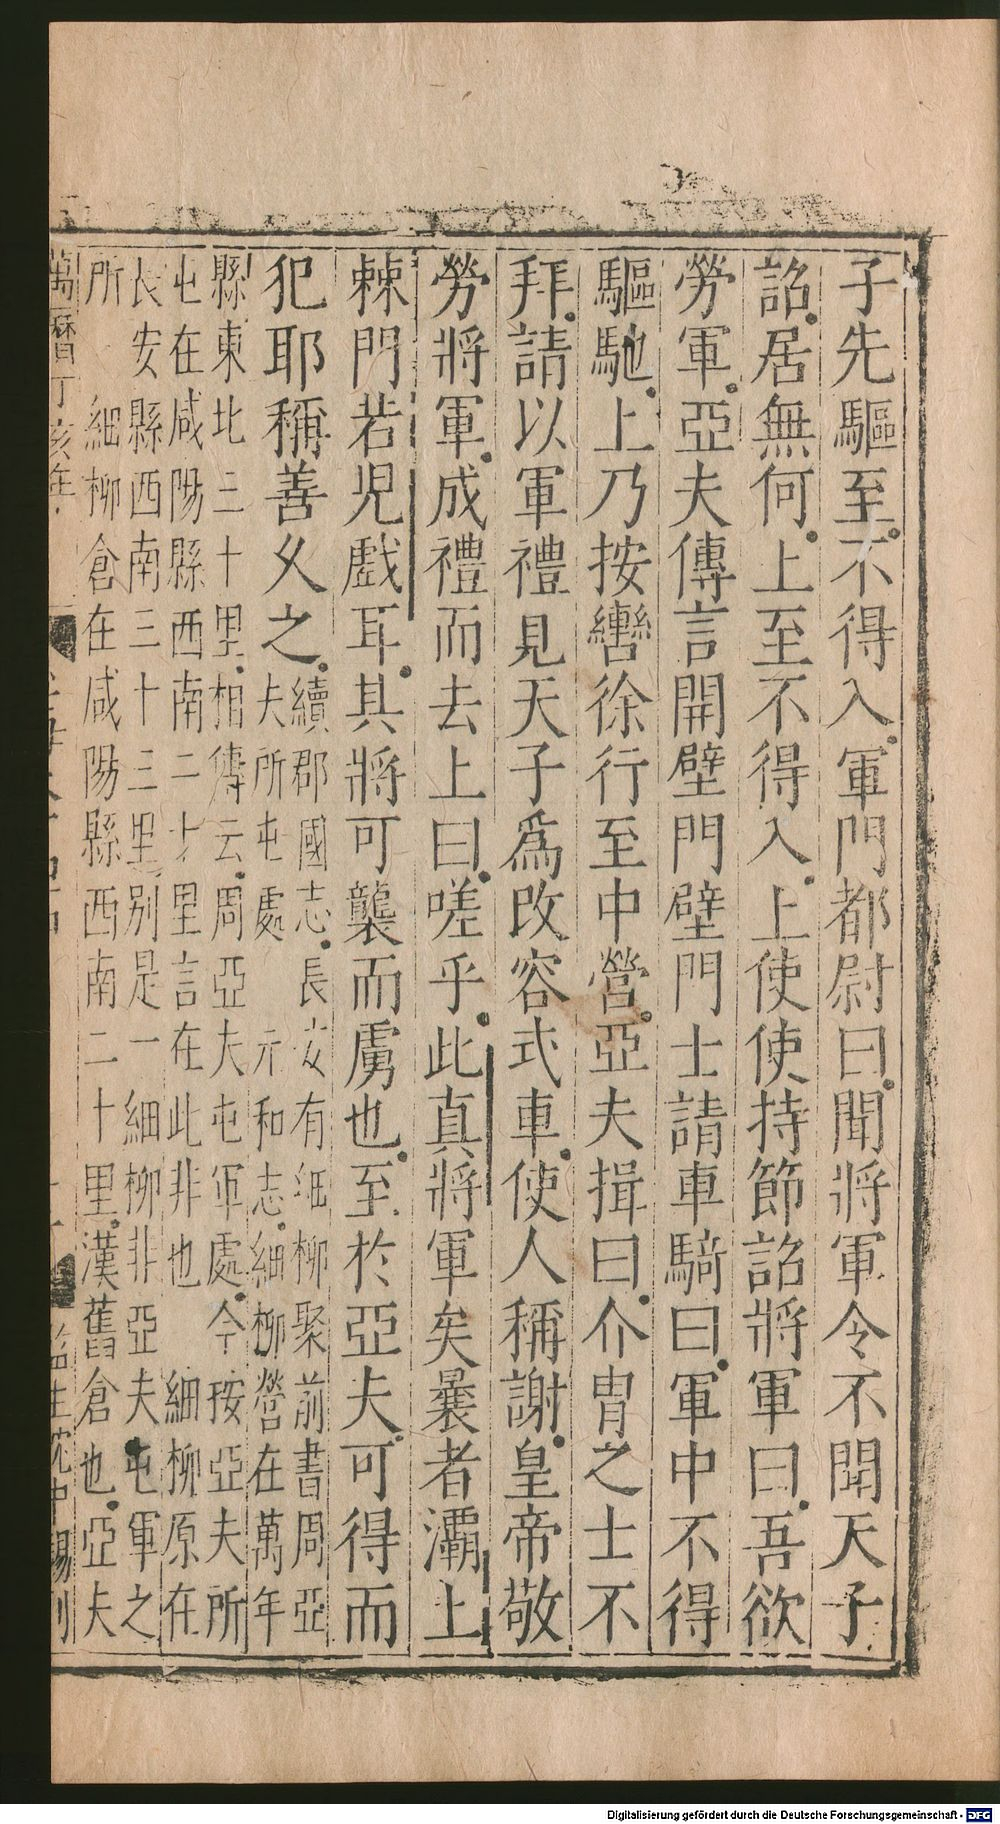 子先驅至不得入軍門都尉曰聞將軍令不聞天子
詔居無何上至不得入上使使持節詔將軍曰吾欲
勞軍亞夫傳言開壁門壁門士請車騎曰軍中不得
驅馳上乃按轡徐行至中營亞夫揖曰介胄之士不
拜請以軍禮見天子爲改容式車使人稱謝皇帝敬
勞將軍成禮而去上曰嗟乎此真將軍矣曩者灞上
棘門若児戲耳其將可襲而虜也至於亞夫可得而
犯耶稱善久之
續郡國志長安有細柳聚前書周亞
夫所屯處 元和志細柳營在萬年
縣東北三十里相傳云周亞夫屯軍處今按亞夫所
屯在咸陽縣西南二十里言在此非也 細柳原在
長安縣西南三十三里別是一細柳非亞夫屯軍之
所 細柳倉在咸陽縣西南二十里漢舊倉也亞夫
萬曆丁亥年 監生沈中錫刊
Digitalisierung gefördert durch die Deutsche Forschungsgemeinschaft - DFG